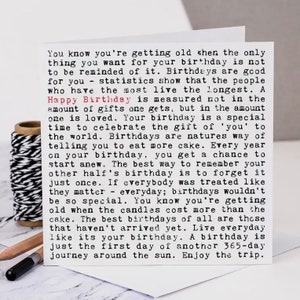 You know you're getting old when the only
thing you want for your birthday is not
to be reminded of it. Birthdays are good
for you - statistics show that the people
who have the most live the longest. A
Happy Birthday is measured not in the
amount of gifts one gets, but in the amount
one is loved. Your birthday is a special
time to celebrate the gift of 'you' to
the world. Birthdays are natures way of
telling you to eat more cake. Every year
on your birthday, you get a chance to
start anew. The best way to remember your
other half's birthday is to forget it
just once. If everybody was treated like
they matter - everyday; birthdays wouldn't
be so special. You know you're getting
old when the candles cost more than the
cake. The best birthdays of all are those
that haven't arrived yet. Live everyday
like its your birthday. A birthday is
just the first day of another 365-day
journey around the sun. Enjoy the trip.